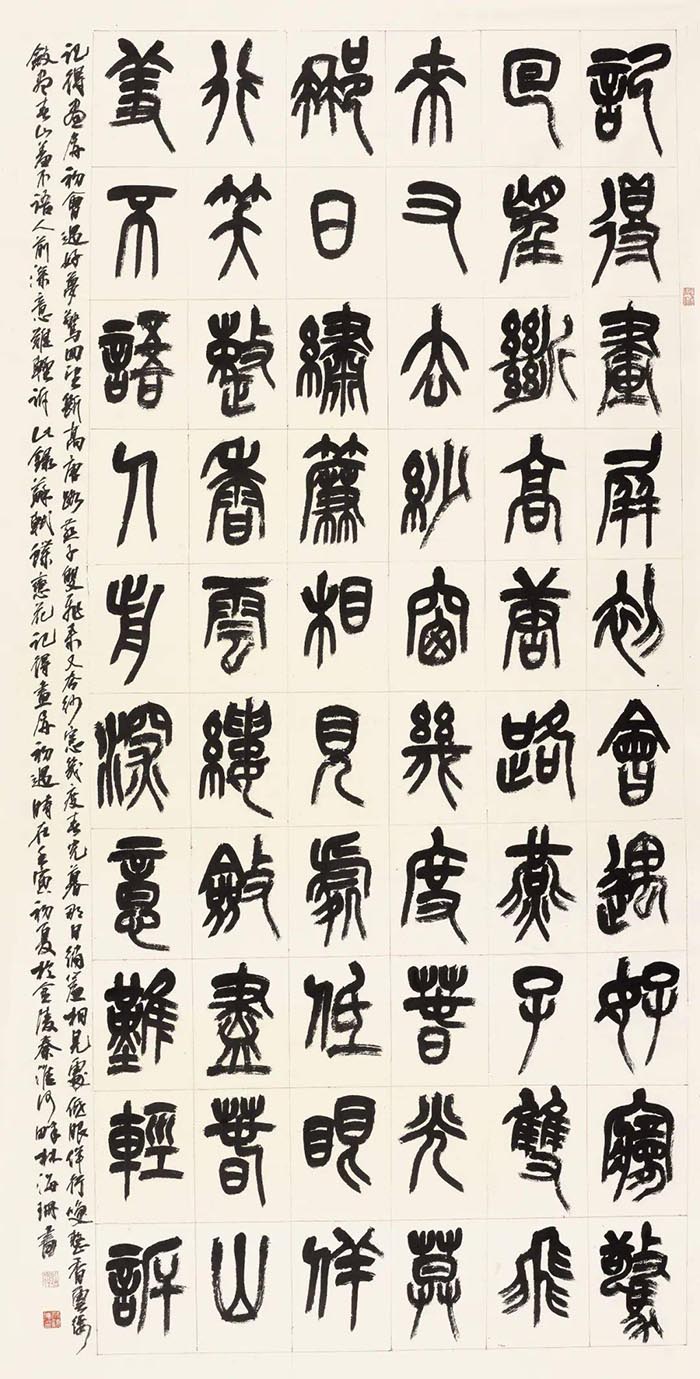 記得畫屏初會遇好夢驚
回望斷高唐路燕子雙飛
來又去紗窗幾度春光莫
那日繡簾相見處低眼佯
行笑整香雲縷斂盡春山
羞不語人前深意難輕訴
記得畫屏初會遇好夢驚回望斷高唐路燕子雙飛來又去紗窗幾度春光暮那日繡簾相見處低眼佯行笑整香雲縷
斂盡春山羞不語人前深意難輕訴此錄蘇軾蝶戀花記得畫屏初遇時在壬寅初夏於金陵秦淮河畔林海珊書